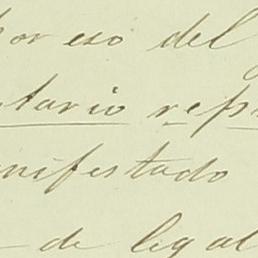 por eso del
tario rep
nifestado
de legal